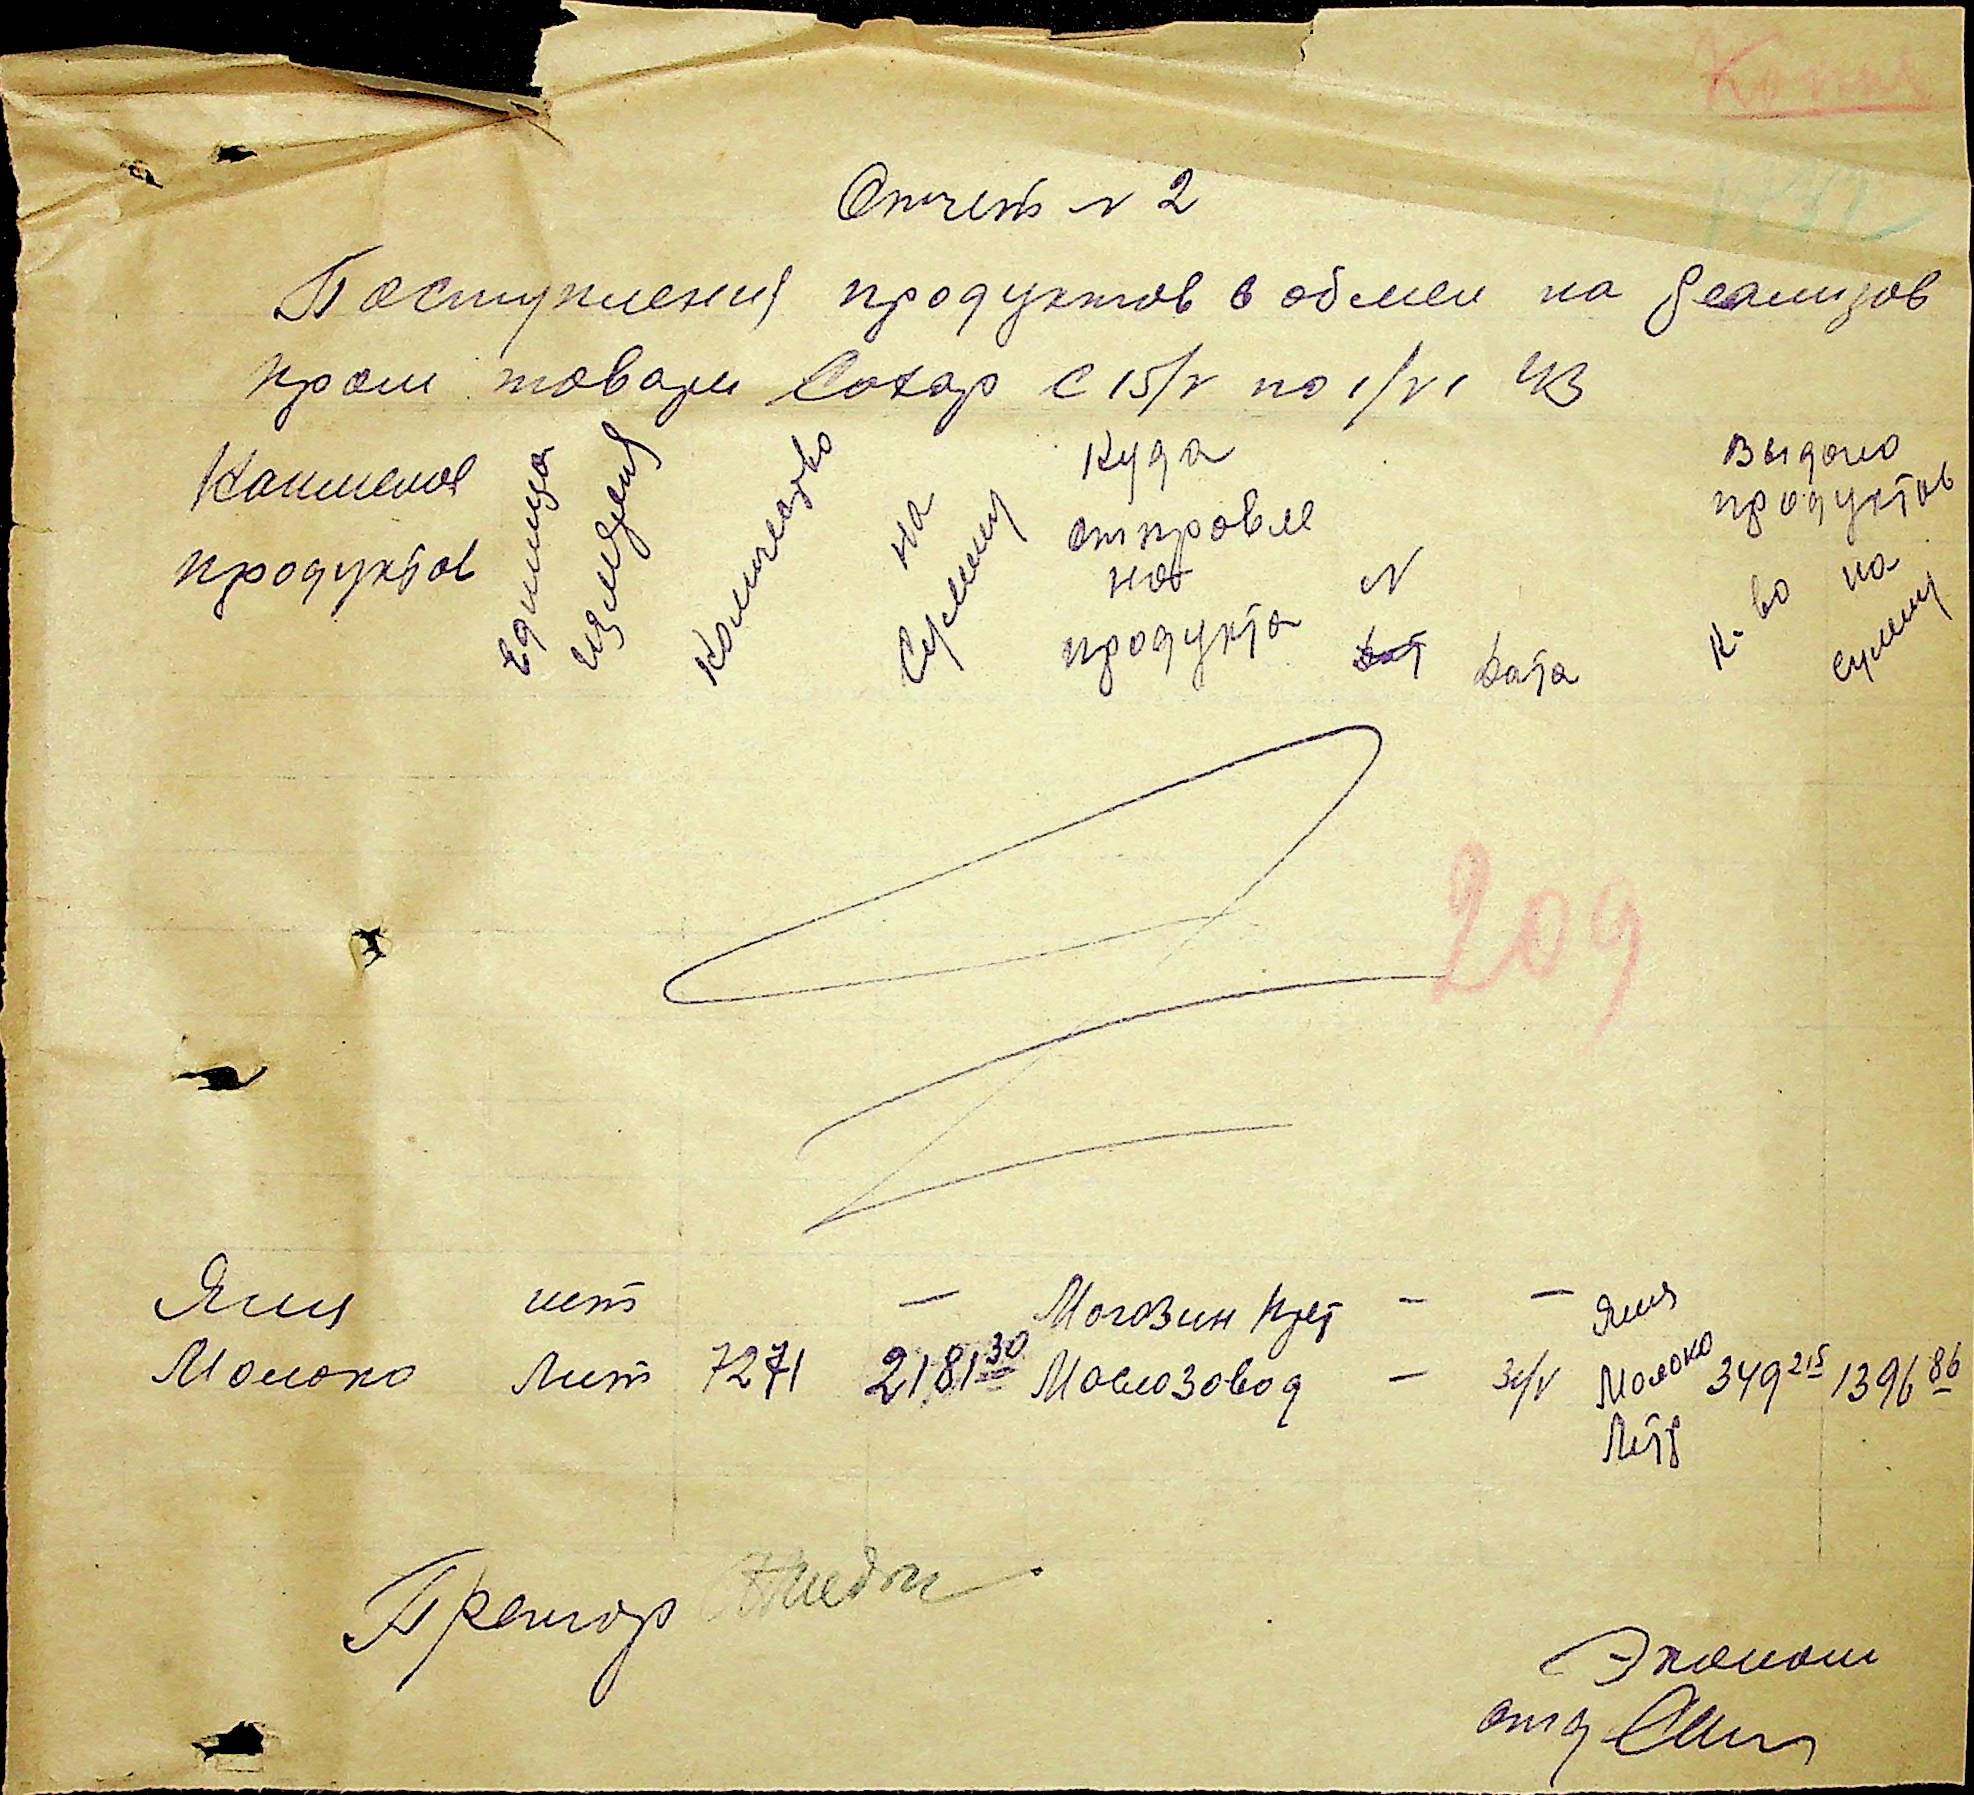 Копия
Отчет N 2
Поступления продуктов в обмен на реализов
пром товары Сахар с 15/V по 1/VI 43
Наименов продуктов
Единица измерения
Количество
на сумму
Куда отправле но продукта
N
Дата
Выдано продуктов
К-во на сумму
209
Яиц шт — Магазин – — Яиц
Молоко Лит 7271 2181 30 Маслозавод – 31/V Молоко Литр 349 215 1396 86
Претор
Эконом
отд